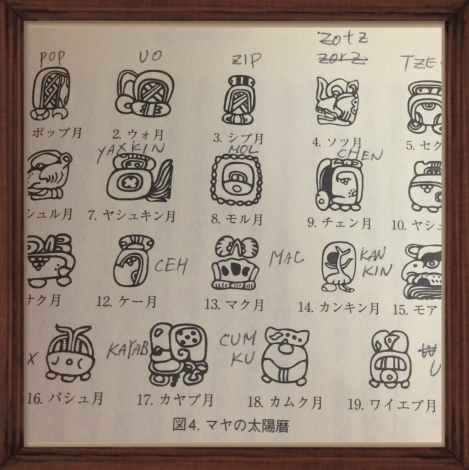 POP UO ZIP ZOTZ
ZORZ TZE
ポップ月 2. ウォ月 3. シプ月 4. ソツ月 5. セク
YAXKIN MOL CHEN
シュル月 7. ヤシュキン月 8. モル月 9. チェン月 10. ヤシ
CEH MAC KAN KIN
ナク月 12. ケー月 13. マク月 14. カンキン月 15. モア
X KAYAB CUM KU U
16. パシュ月 17. カヤブ月 18. カムク月 19. ワイエブ月
図4. マヤの太陽暦